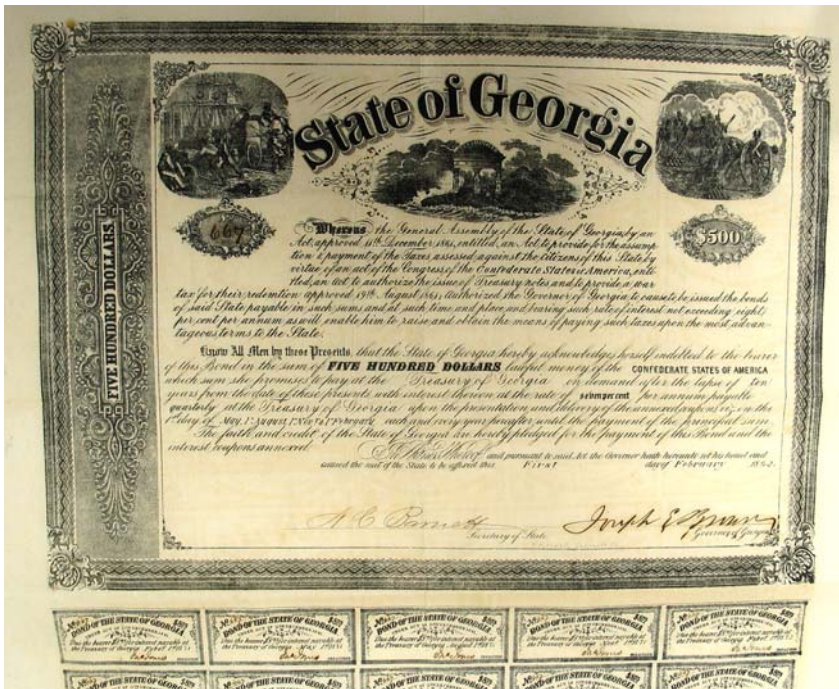 State of Georgia
667
$500
FIVE HUNDRED DOLLARS
Whereas the General Assembly of the State of Georgia, by an
Act, approved 18th December 1861, entitled, an Act to provide for the assump
tion & payment of the Taxes assessed against the citizens of this State by
virtue of an act of the Congress of the Confederate States of America, enti
tled, an Act to authorize the issue of Treasury notes and to provide a war
tax for their redemtion approved 19th August 1861; Authorized the Governor of Georgia to cause to be issued the bonds
of said State payable in such sums and at such time and place and bearing such rate of interest not exceeding eight
per cent per annum as will enable him to raise and obtain the means of paying such taxes upon the most advan-
tageous terms to the State.
Know All Men by these Presents, that the State of Georgia hereby acknowledges herself indebted to the bearer
of this Bond in the sum of FIVE HUNDRED DOLLARS lawful money of the CONFEDERATE STATES OF AMERICA
which sum she promises to pay at the Treasury of Georgia on demand after the lapse of ten
years from the date of these presents, with interest thereon at the rate of seven per cent per annum payable
quarterly at the Treasury of Georgia upon the presentation and delivery of the annexed coupons viz, on the
1st day of May, 1st August, 1st Nov. & 1st February each and every year hereafter until the payment of the principal sum.
The faith and credit of the State of Georgia are hereby pledged for the payment of this Bond and the
interest coupons annexed. In Witness Whereof and pursuant to said Act the Governor hath hereunto set his hand and
caused the seal of the State to be affixed this First day of February 1862.
N C Barnett
Secretary of State
Joseph E Brown
Governor of Georgia
BOND OF THE STATE OF GEORGIA
BOND OF THE STATE OF GEORGIA
BOND OF THE STATE OF GEORGIA
BOND OF THE STATE OF GEORGIA
BOND OF THE STATE OF GEORGIA
BOND OF THE STATE OF GEORGIA
BOND OF THE STATE OF GEORGIA
BOND OF THE STATE OF GEORGIA
BOND OF THE STATE OF GEORGIA
BOND OF THE STATE OF GEORGIA